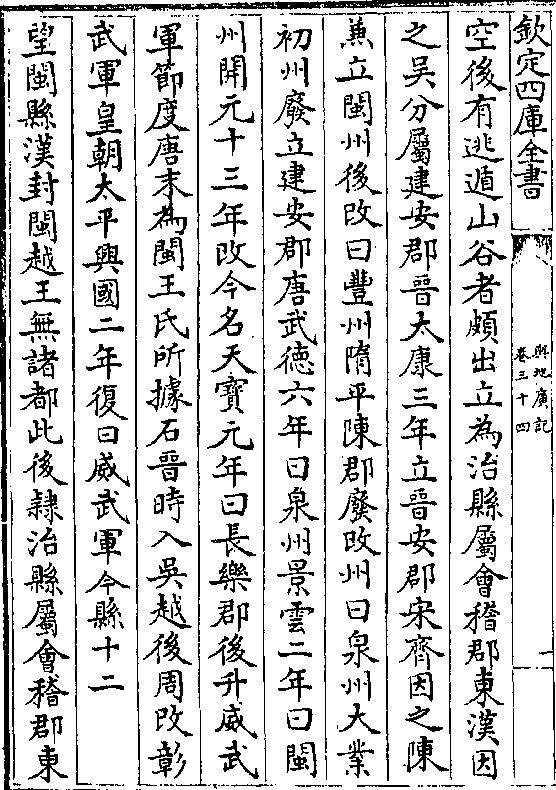 欽定四庫全書
輿地廣記
卷三十四
一
空後有逃遁山谷者頗出立為治縣屬會稽郡東漢因
之吳分屬建安郡晉太康三年立晉安郡宋齊因之陳
兼立閩州後改曰豐州隋平陳郡廢改州曰泉州大業
初州廢立建安郡唐武德六年曰泉州景雲二年曰閩
州開元十三年改今名天寶元年曰長樂郡後升威武
軍節度唐末為閩王氏所據石晉時入吳越後周改彰
武軍皇朝太平興國二年復曰威武軍今縣十二
望閩縣漢封閩越王無諸都此後隸治縣屬會稽郡東